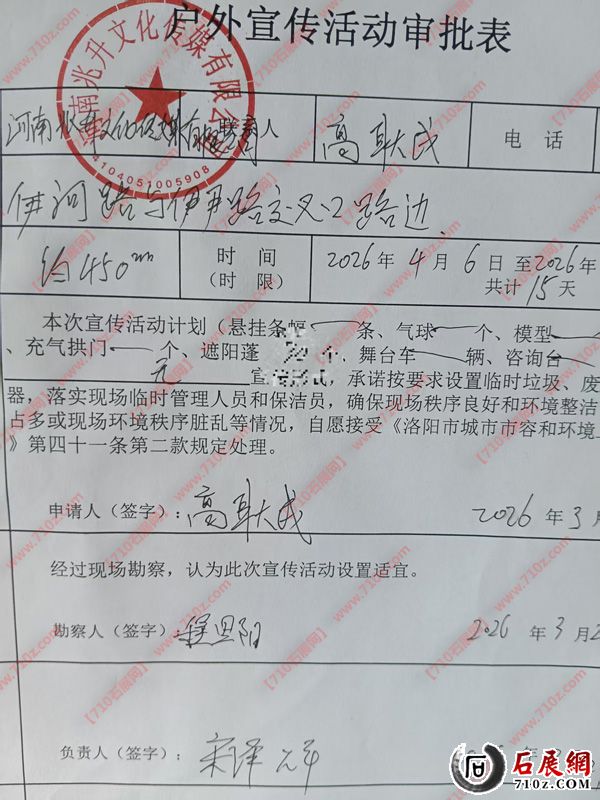 户外宣传活动审批表
南兆升文化传媒有限公
4104051005908
河南兆升文化传媒有限 联系人 高耿成 电话
伊河路与伊尹路交叉口路边
约450㎡ 时间 2026年4月6日至2026年
(时限) 共计15天
本次宣传活动计划(悬挂条幅 条、气球 个、模型
、充气拱门 个、遮阳蓬 30个、舞台车 辆、咨询台
无 宣传形式,承诺按要求设置临时垃圾、废
器,落实现场临时管理人员和保洁员,确保现场秩序良好和环境整洁
占多或现场环境秩序脏乱等情况,自愿接受《洛阳市城市市容和环境
》第四十一条第二款规定处理。
申请人(签字): 高耿成 2026年3月
经过现场勘察,认为此次宣传活动设置适宜。
勘察人(签字): 程思阳 2026年3月2
负责人(签字): 年
石展網
710z.com
【710石展网】www.710z.com